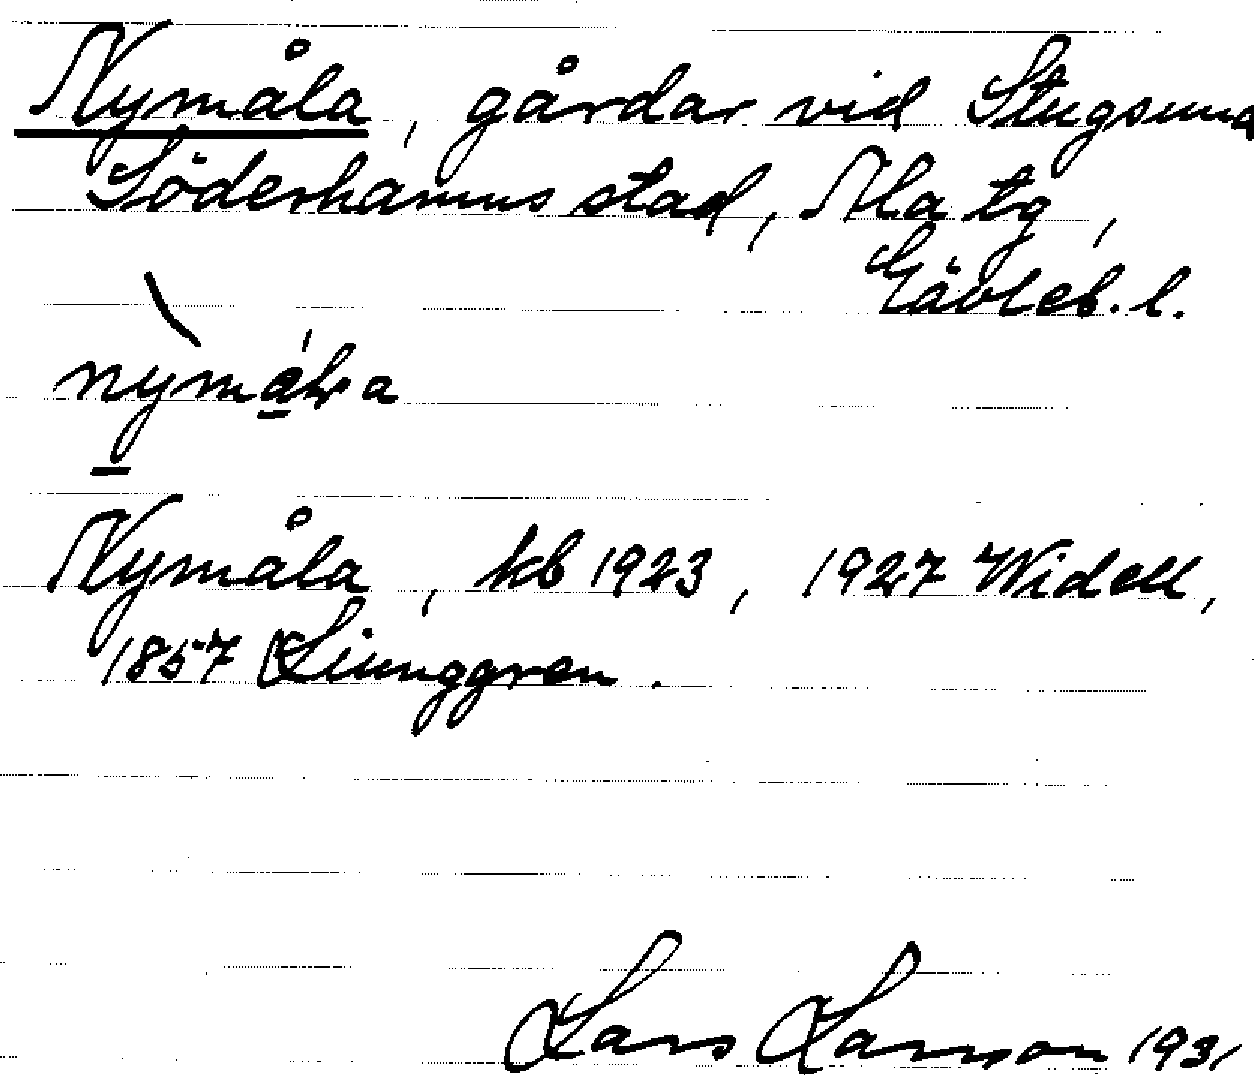 Nymåla, gårdar vid Stugsund
Söderhamns stad, Ala tg,
Gävleb. l.
nymåla
Nymåla, kb 1923, 1927 Widell,
1857 Ljunggren.
Lars Larsson 1931